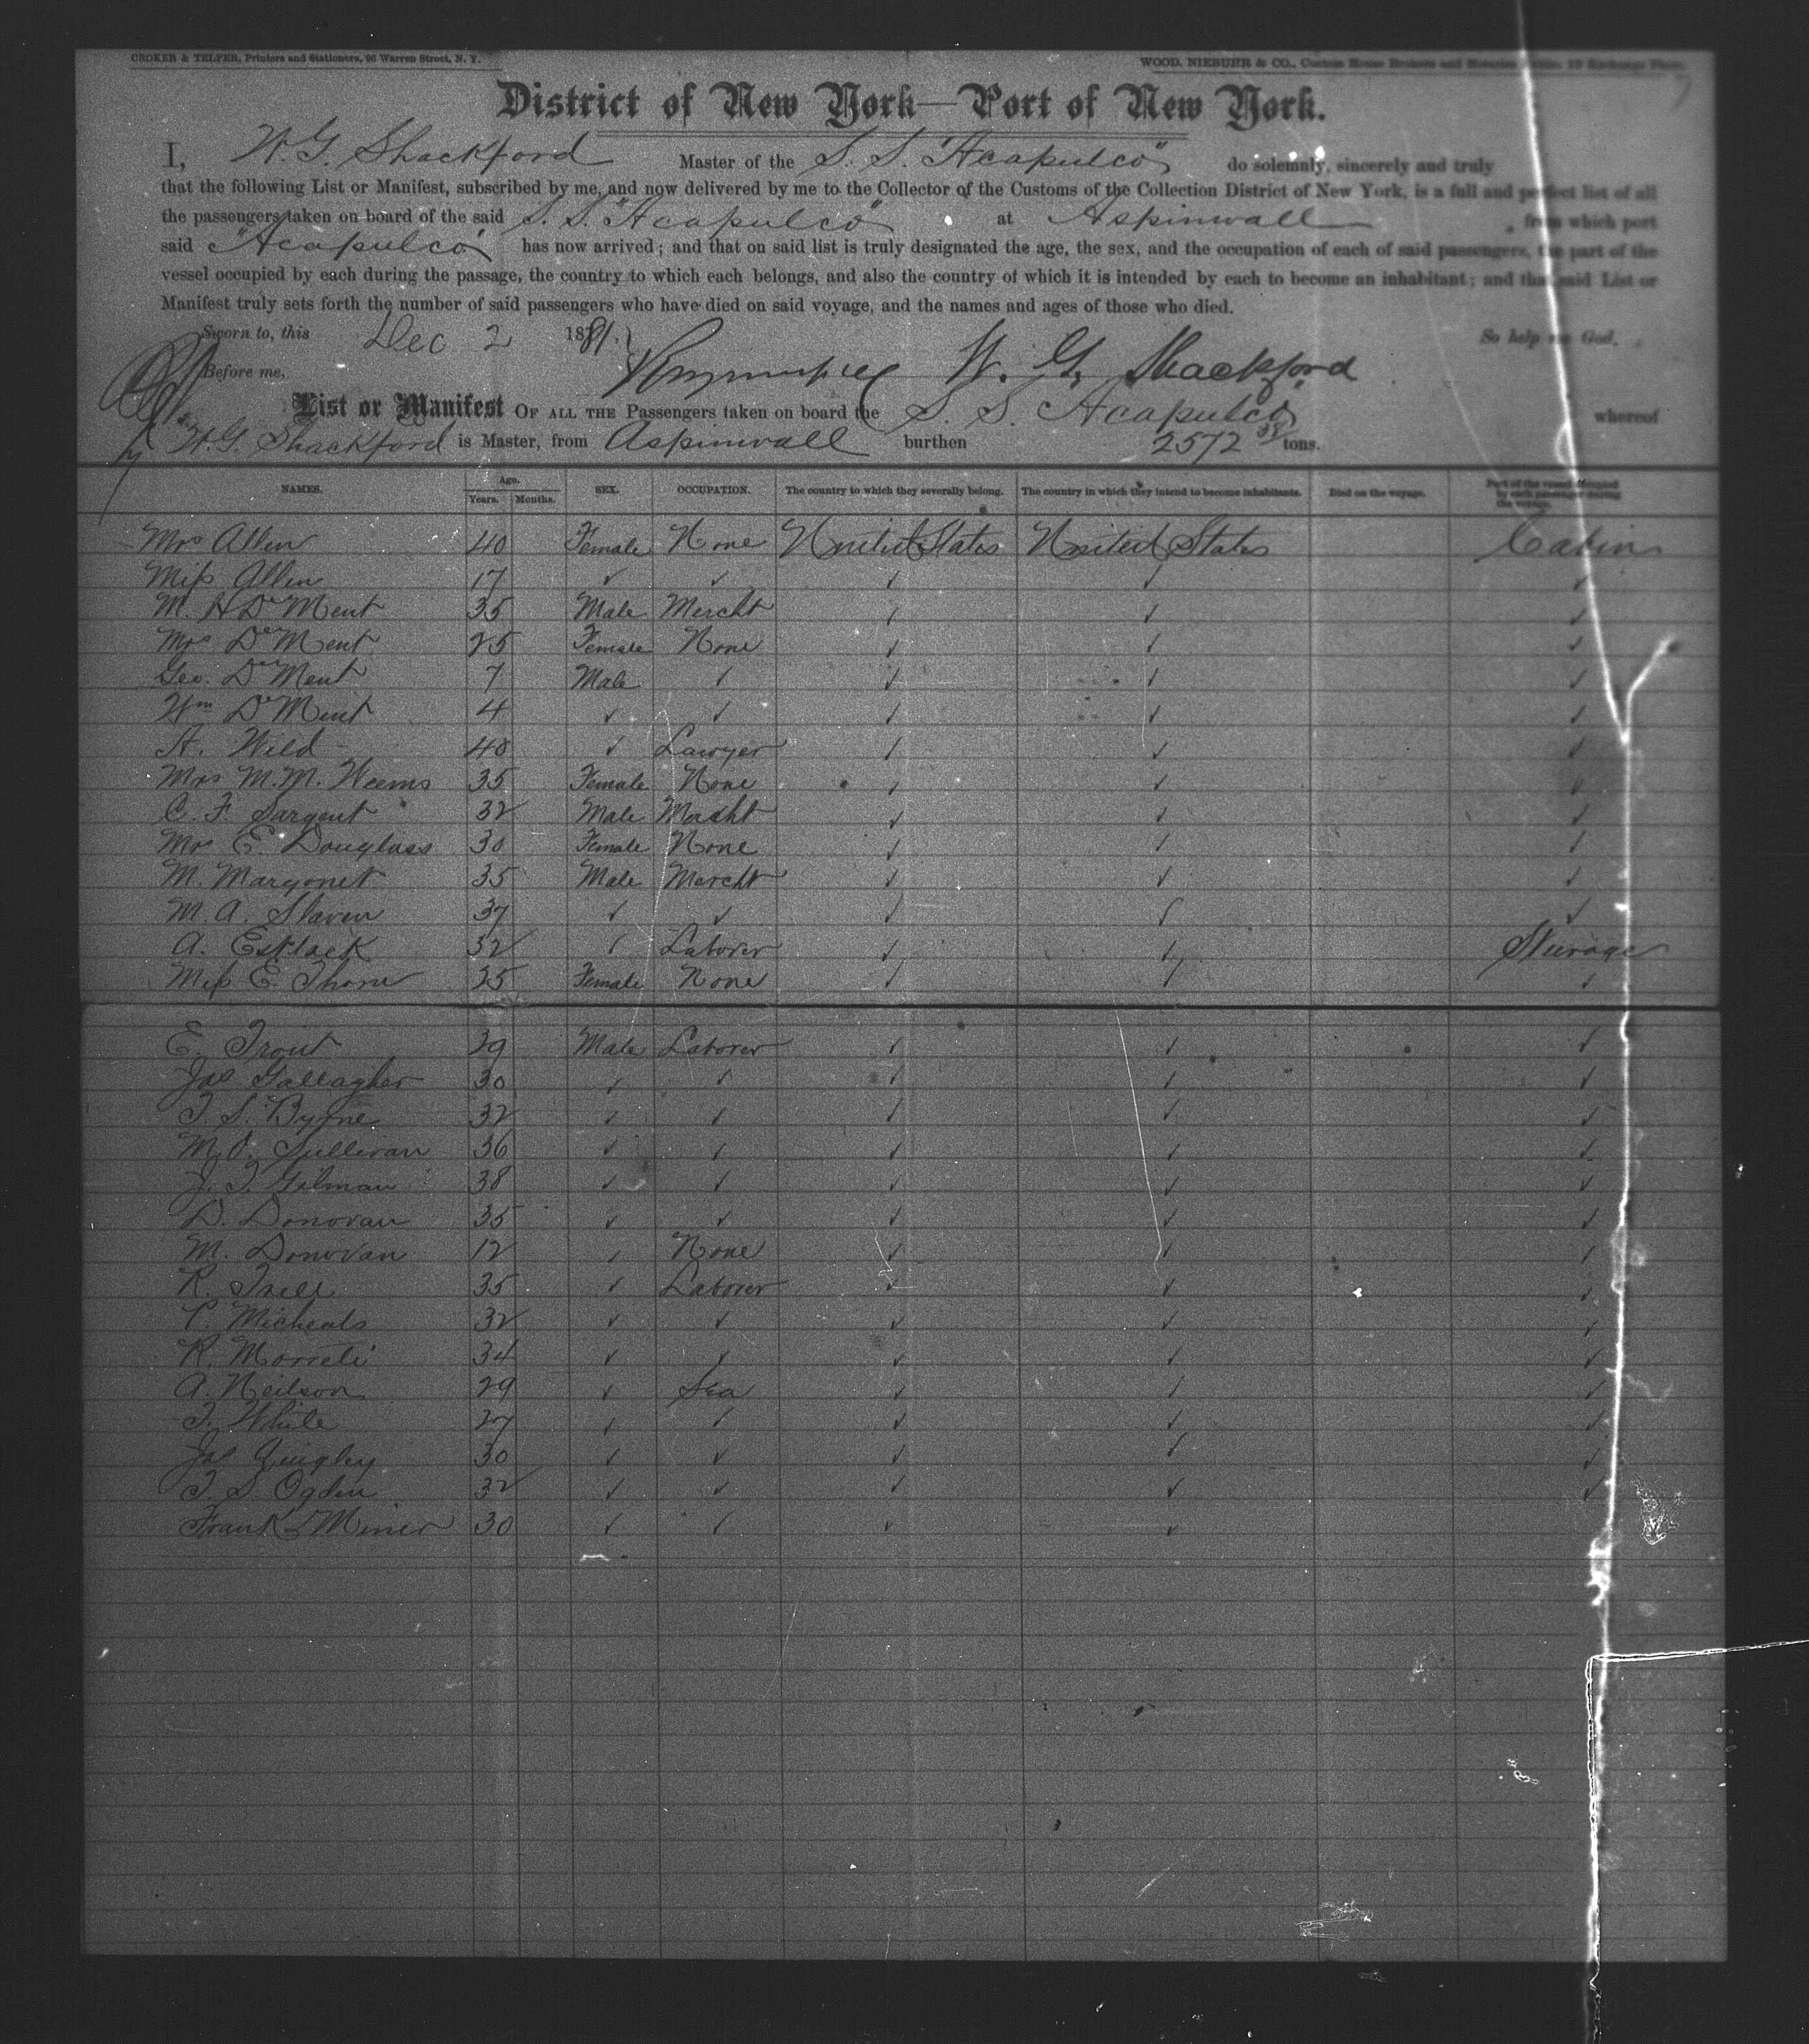 CROKER & TELFER, Printers and Stationers, 96 Warren Street, N. Y.
WOOD, NIEBUHR & CO., Custom House Brokers and Notaries
District of New York—Port of New York.
I, W. G. Shackford Master of the S. S. "Acapulco" do solemnly, sincerely and truly
that the following List or Manifest, subscribed by me, and now delivered by me to the Collector of the Customs of the Collection District of New York, is a full and perfect list of all
the passengers taken on board of the said S. S. "Acapulco" at Aspinwall, from which port
said "Acapulco" has now arrived; and that on said list is truly designated the age, the sex, and the occupation of each of said passengers, the part of the
vessel occupied by each during the passage, the country to which each belongs, and also the country of which it is intended by each to become an inhabitant; and that said List or
Manifest truly sets forth the number of said passengers who have died on said voyage, and the names and ages of those who died.
Sworn to, this Dec 2 1881. So help me God.
Before me, W. G. Shackford
List or Manifest OF ALL THE Passengers taken on board the S. S. Acapulco whereof
W. G. Shackford is Master, from Aspinwall burthen 2572 38/ tons.
NAMES. Age. Years. Months. SEX. OCCUPATION. The country to which they severally belong. The country in which they intend to become inhabitants. Died on the voyage. Part of the vessel occupied by each passenger during the voyage.
Mrs Allen 40 Female None United States United States Cabin
Miss Allen 17 ✓ ✓ ✓ ✓ ✓
M. H DeMent 35 Male Mercht ✓ ✓ ✓
Mrs DeMent 25 Female None ✓ ✓ ✓
Geo. DeMent 7 Male ✓ ✓ ✓ ✓
Wm DeMent 4 ✓ ✓ ✓ ✓ ✓
A. Wild 40 ✓ Lawyer ✓ ✓ ✓
Mrs M. M. Weems 35 Female None ✓ ✓ ✓
C. F. Sargent 32 Male Mercht ✓ ✓ ✓
Mrs E. Douglass 30 Female None ✓ ✓ ✓
M. Margonet 35 Male Mercht ✓ ✓ ✓
M. A. Slaven 37 ✓ ✓ ✓ ✓ ✓
A. 32 ✓ Laborer ✓ ✓ Sturage
Miss E. Thorn 25 Female None ✓ ✓ ✓
E. Trout 39 Male Laborer ✓ ✓ ✓
Jas Gallagher 30 ✓ ✓ ✓ ✓ ✓
T. S. Byrne 32 ✓ ✓ ✓ ✓ ✓
M. O. Sullivan 36 ✓ ✓ ✓ ✓ ✓
J. T. Gilman 38 ✓ ✓ ✓ ✓ ✓
D. Donovan 35 ✓ ✓ ✓ ✓ ✓
M. Donovan 12 ✓ None ✓ ✓ ✓
R. 35 ✓ Laborer ✓ ✓ ✓
P. Micheals 32 ✓ ✓ ✓ ✓ ✓
R. 34 ✓ ✓ ✓ ✓ ✓
A. Neilson 29 ✓ Sea ✓ ✓ ✓
T. White 27 ✓ ✓ ✓ ✓ ✓
Jas Quigley 30 ✓ ✓ ✓ ✓ ✓
T. S. Ogden 32 ✓ ✓ ✓ ✓ ✓
Frank Miner 30 ✓ ✓ ✓ ✓